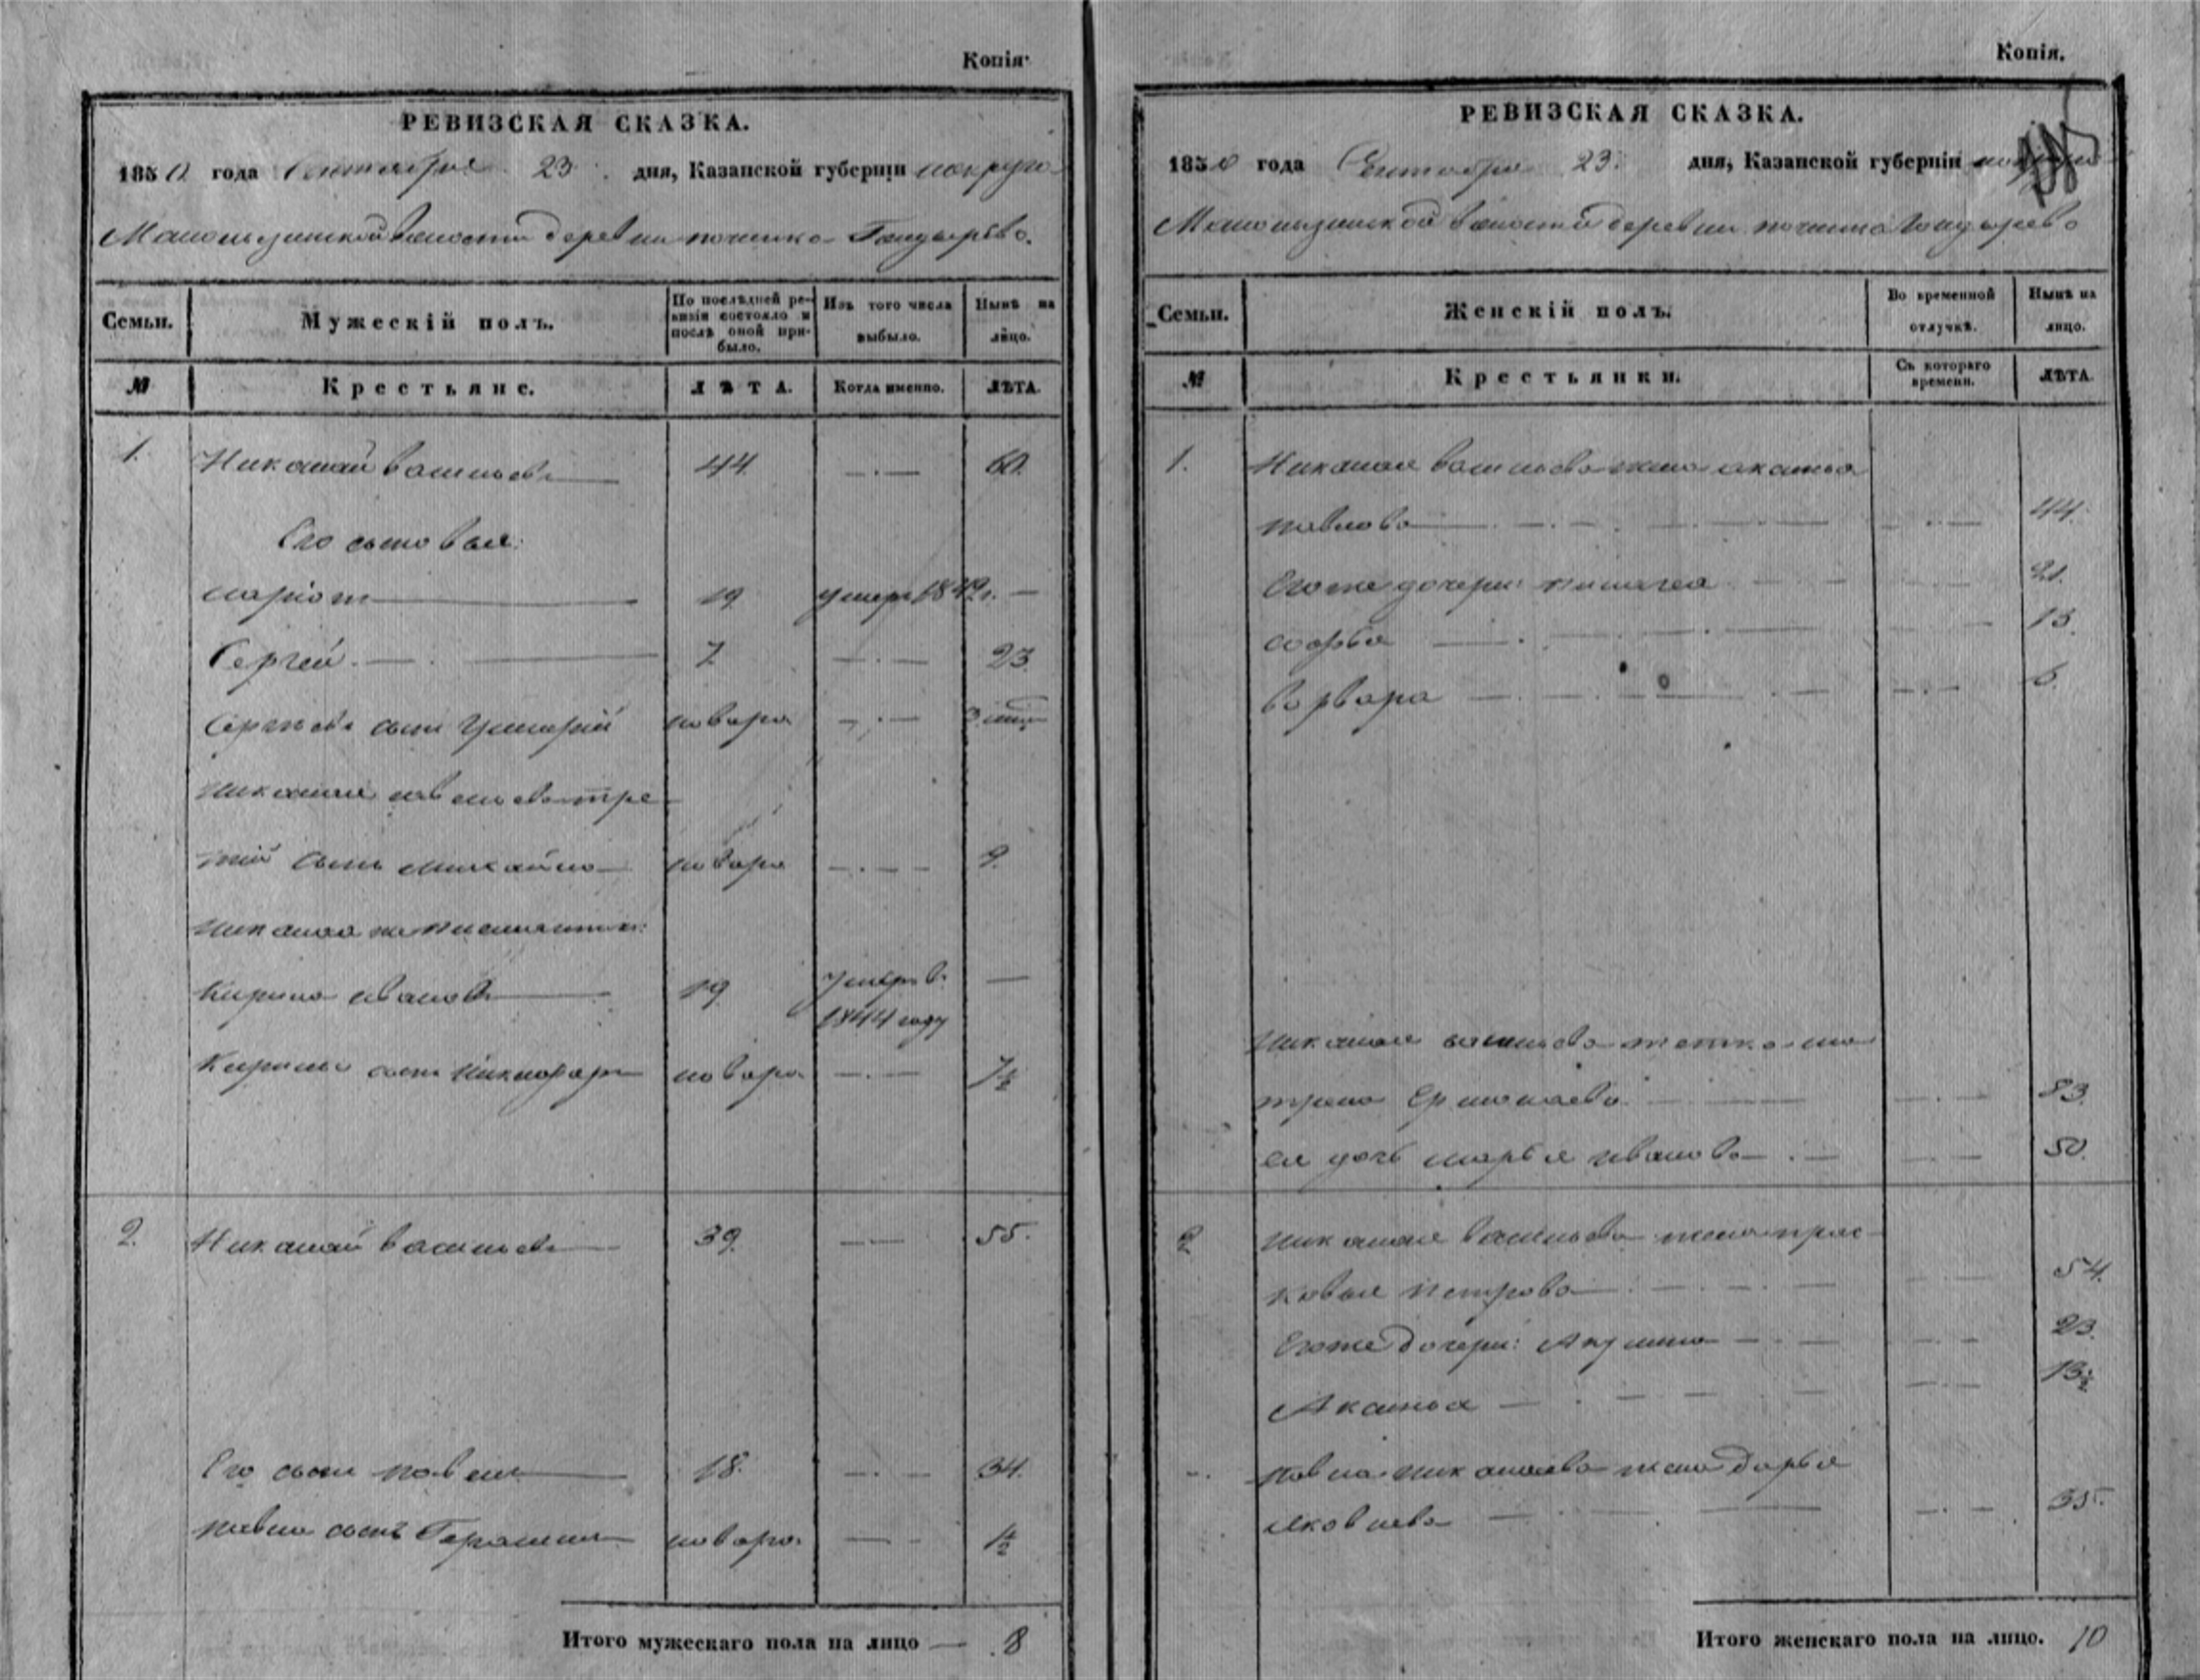 Копія.
РЕВИЗСКАЯ СКАЗКА.
1850 года Сентября 23 дня, Казанской губерніи
волости деревни починка
Семьи.
Мужескій полъ.
По послѣдней ревизіи состояло и послѣ оной прибыло.
Изъ того числа выбыло.
Нынѣ на лицо.
№
Крестьяне.
ЛѢТА.
Когда именно.
ЛѢТА.
1. Николай Васильевъ 44 60.
Его сыновья:
19 умеръ 1849г.
Сергей 7 23.
Сергѣевъ сынъ новорж
Николая Васильева тре
тій сынъ Михайло новорж 9.
Николая племянникъ:
Кирило Ивановъ 19. умеръ въ
1844 году
Кирилы сынъ Никифоръ новорж 7½
2. Николай Васильевъ 39. 55.
Его сынъ Павелъ 18. 34.
Павла сынъ Герасимъ новорж ½
Итого мужескаго пола на лицо 8
Копія.
РЕВИЗСКАЯ СКАЗКА.
1850 года Сентября 23. дня, Казанской губерніи
волости деревни починка
Семьи.
Женскій полъ.
Во временной отлучкѣ.
Нынѣ на лицо.
№
Крестьянки.
Съ котораго времени.
ЛѢТА.
1. Николая Васильева жена Аксинья
Павлова 44.
Его же дочери: Пелагея 21.
Софья 13.
Варвара 6.
Николая Васильева тетка Ма
трена Ермолаева 83.
ея дочь Марья Иванова 50.
2. Николая Васильева жена Прас
ковья Петрова 54.
Его же дочери: Акулина 23.
Аксинья 13½
Павла Николаева жена Дарья
Яковлева 35.
Итого женскаго пола на лицо. 10